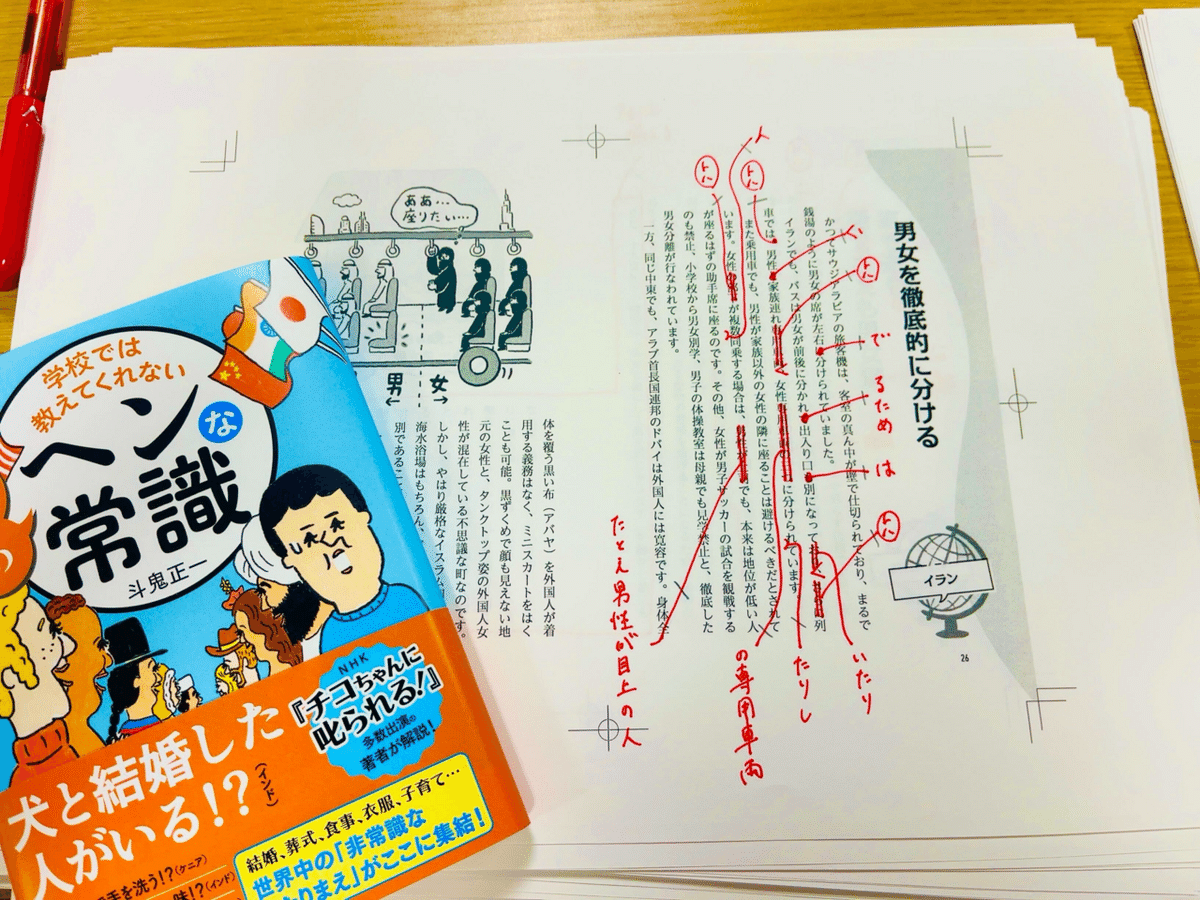 男女を徹底的に分ける
イラン
26
かつてサウジアラビアの旅客機は、客室の真ん中が壁で仕切られており、まるで
銭湯のように男女の席が左右 分けられていました。
イランでも、バスは男女が前後に分かれ 出入り口 別になって 列
車では、男性 家族連れ 女性 に分けられています
また乗用車でも、男性が家族以外の女性の隣に座ることは避けるべきだとされて
います。女性 が複数同乗する場合は、 でも、本来は地位が低い人
が座るはずの助手席に座るのです。その他、女性が男子サッカーの試合を観戦する
のも禁止、小学校から男女別学、男子の体操教室は母親でも見学禁止と、徹底した
男女分離が行なわれています。
一方、同じ中東でも、アラブ首長国連邦のドバイは外国人には寛容です。身体全
トル
トル
トル
トル
人
で
るため
は
いたり
たりし
の専用車両
たとえ男性が目上の人
ああ…
座りたい…
男
女
体を覆う黒い布（アバヤ）を外国人が着
用する義務はなく、ミニスカートをはく
ことも可能。黒ずくめで顔も見えない地
元の女性と、タンクトップ姿の外国人女
性が混在している不思議な町なのです。
しかし、やはり厳格なイスラム
海水浴場はもちろん、
別であること
学校では
教えてくれない
ヘンな
常識
斗鬼正一
NHK
『チコちゃんに
叱られる!』
多数出演の
著者が解説!
犬と結婚した
人がいる!?(インド)
手を洗う!?(ケニア)
味!?(インド)
結婚、葬式、食事、衣服、子育て…
世界中の「非常識な
たりまえ」がここに集結!